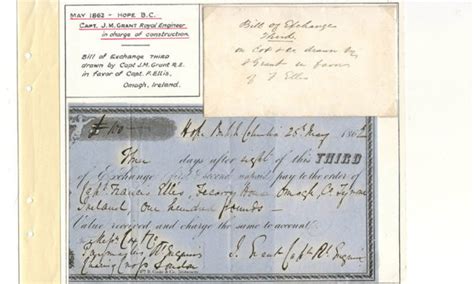 MAY 1862 - HOPE B.C.
CAPT. J. M. GRANT Royal Engineer
in charge of construction.
Bill of Exchange THIRD
drawn by Capt J.M. Grant R.E.
in favor of Capt. F. Ellis,
Omagh, Ireland.
Bill of Exchange
Third
on Cox & Co drawn by
J Grant in favour
of F Ellis
£100 Hope British Columbia 28th May 1862
Three days after sight of this THIRD
of Exchange first second unpaid pay to the order
of Capt Francis Ellis, House Omagh, Co Tyrone
Ireland One hundred Pounds
Value received and charge the same to account
Messrs Cox & Co
Paymasters Rl Engineers
Charing Cross London
J. Grant Capt Rl Engineers